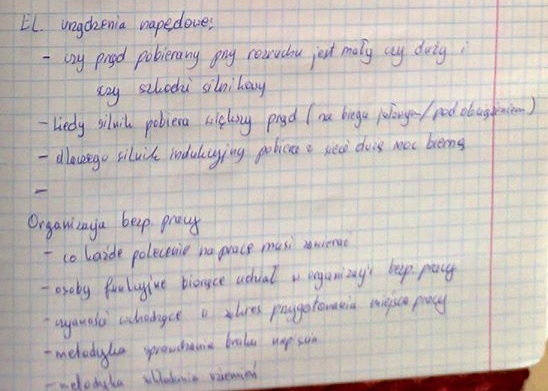 EL. urządzenia napędowe:
- czy prąd pobierany przy rozruchu jest mały czy duży i
czy szkodzi silnikowy
- kiedy silnik pobiera większy prąd (na biegu jałowym/pod obciążeniem)
- dlaczego silnik indukcyjny pobiera z sieci dużą moc bierną
-
Organizacja bezp. pracy
- co każde polecenie na pracę musi zawierać
- osoby funkcyjne biorące udział w organizacji bezp. pracy
- czynności wchodzące w zakres przygotowania miejsca pracy
- metodyka sprawdzania braku napięcia
- metodyka uziemień